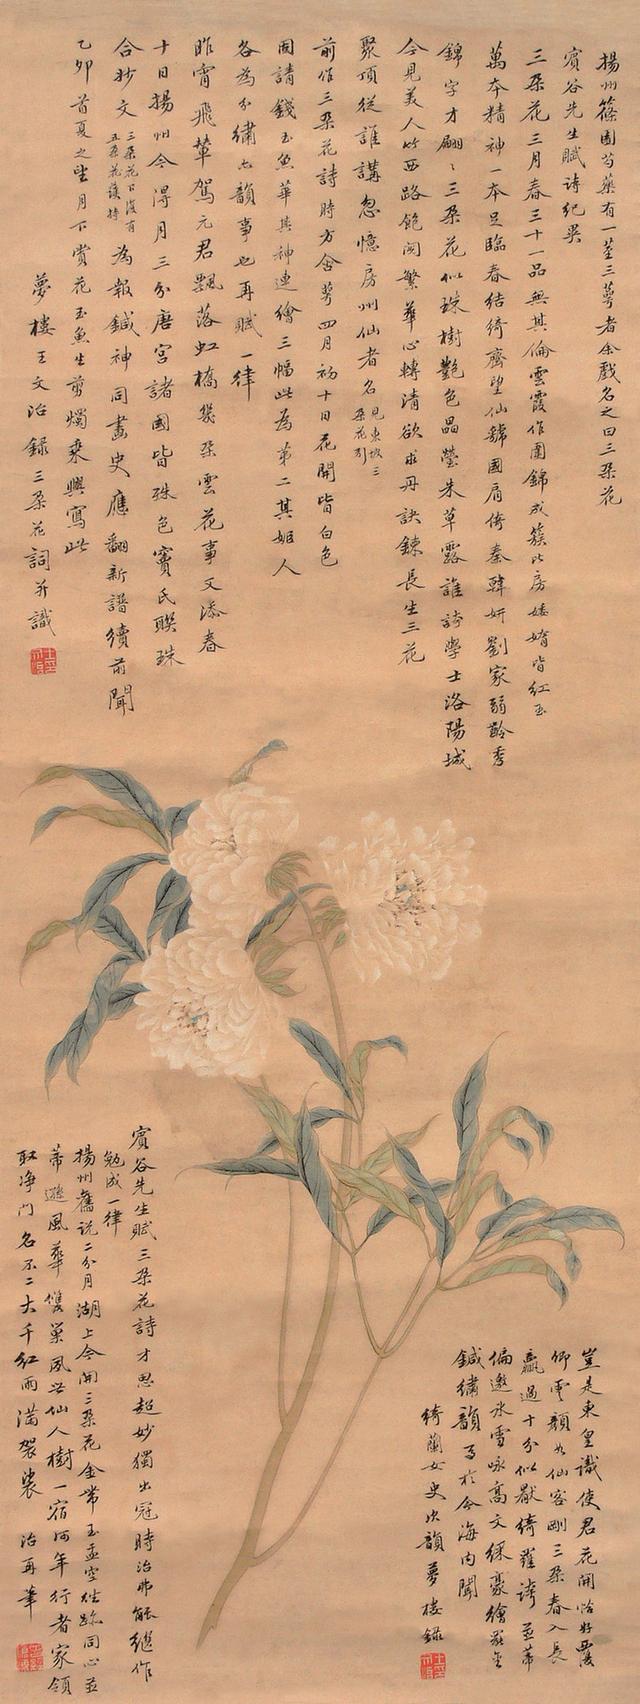 揚州篠園芍藥有一莖三萼者余戲名之曰三朶花
賓谷先生賦詩紀異
三朶花三月春三十一品無其倫雲霞作圍錦成簇比房婑媠皆紅玉
萬本精神一本足臨春結綺齊望仙號國肩倚秦韓妍劉家弱齡秀
錦字才翩〻三朶花似珠樹艷色晶瑩朱草露誰誇學士洛陽城
今見美人竹西路飽閱繁華心轉清欲求丹訣鍊長生三花
聚頂從誰講忽憶房州仙者名見東坡三朶花引
前作三朶花詩時方含萼四月初十日花開皆白色
因請錢玉魚華其神連繪三幅此為第二其姬人
各為分繡亦韻事也再賦一律
昨宵飛輦駕元君飄落虹橋幾朶雲花事又添春
十日揚州今得月三分唐宮諸國皆殊色竇氏聯珠
合妙文三朶花下復有五朶花護持為報鍼神同畫史應翻新譜續前聞
乙卯首夏之望月下賞花玉魚生剪燭乘興寫此
夢樓王文治錄三朶花詞并識
賓谷先生賦三朶花詩才思超妙獨出冠時治弗能繼作
勉成一律
揚州舊說二分月湖上今開三朶花金帶玉盂空往跡同心並
蒂遜風華雙巢夙世仙人樹一宿何年行者家領
取淨門名不二大千紅雨滿袈裟 治再筆
豈是東皇識使君花開恰好覆
卿雲顏如仙客剛三朶春入長
贏過十分似厭綺羅誇並蒂
偏邀冰雪咏高文綵豪繪罷金
鍼繡韻事於今海內聞
綺蘭女史次韻夢樓錄